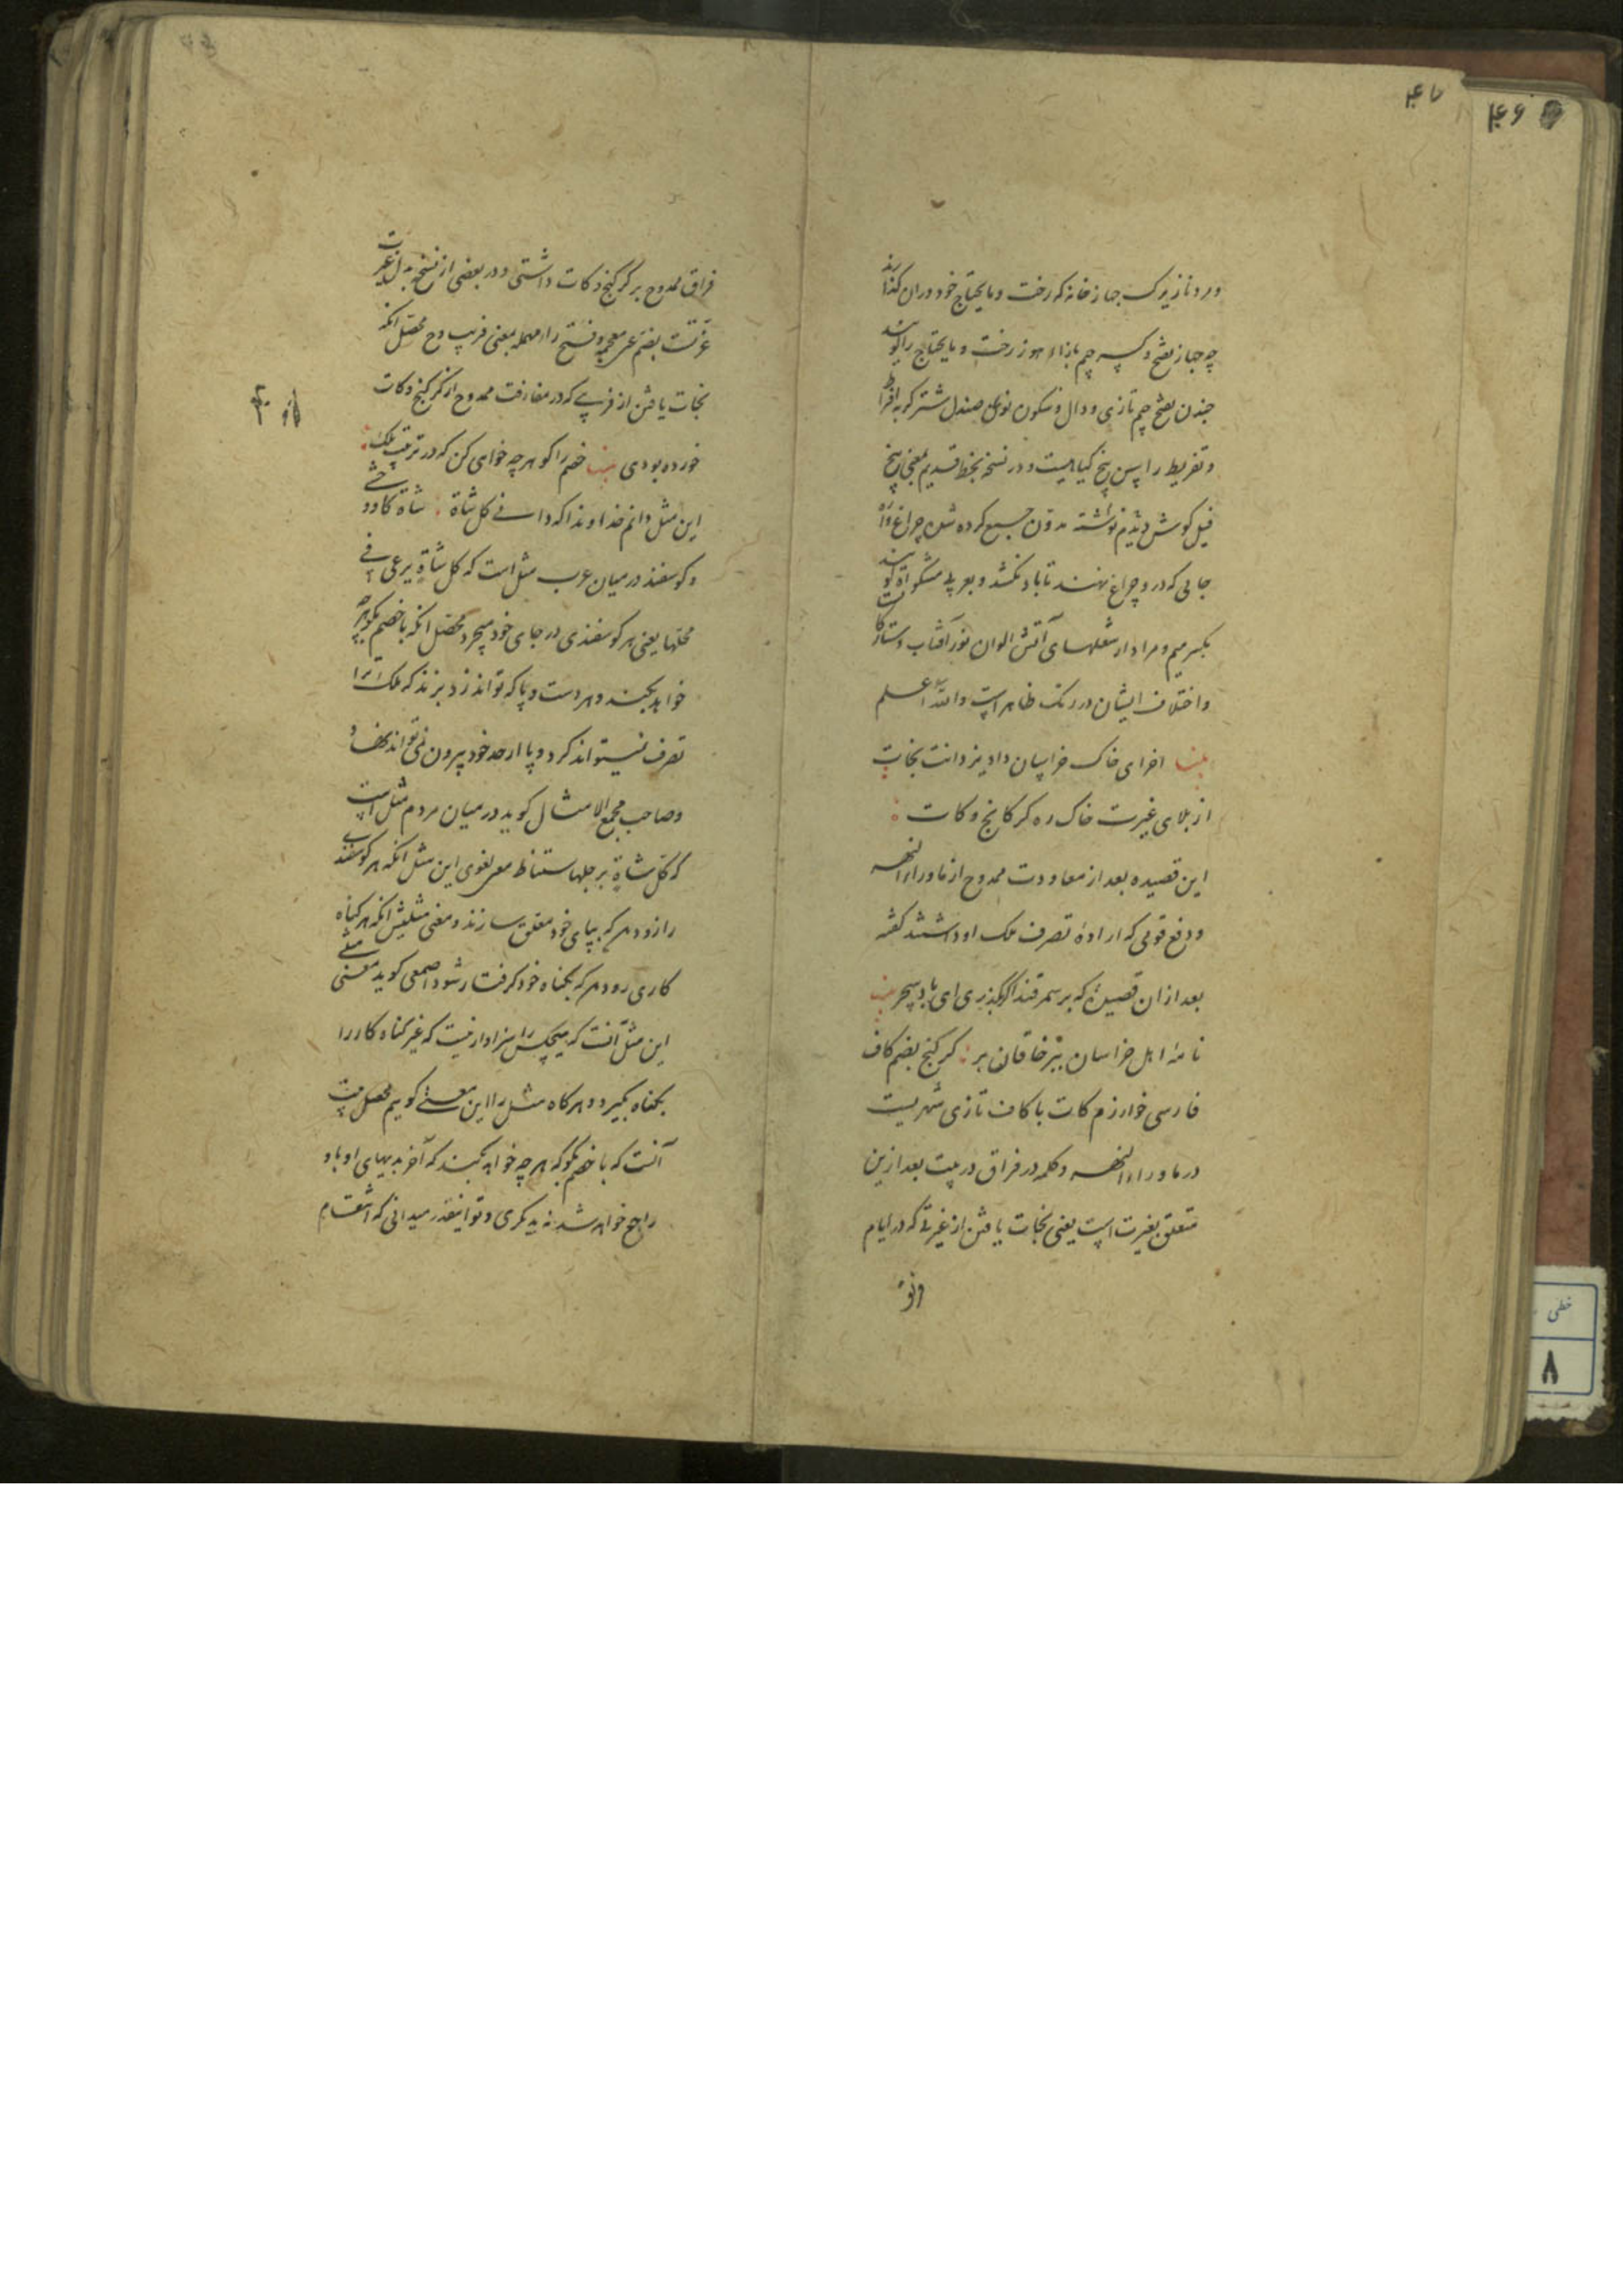 ۴۶
۴۷
و مرد نازیرک جهازخانه که رخت و مایحتاج خود در ان گذارند
چه جهاز بفتح و کسر جیم بازاء هوز رخت و مایحتاج را گویند
جندن بفتح جیم تازی و دال و سکون نون صندل شتر کربه افراط
و تفریط را پس پنج کیاهیست و در نسخهٔ بخط قدیم بمعنی پنج
فیل گوش دیدم نوشته مدون جمع کرده شده چراغ واره
جایی که درو چراغ نهند تا باد نکشد و بعربی مشکوة گویند
بکسر میم و مراد از شعلهای آتش الوان نور آفتاب و ستارکانست
و اختلاف ایشان در رنک ظاهر است والله اعلم
بیت اخرای خاک خراسان داد یزدانت نجات
از بلای غیرت خاک ره کرکانج و کات
این قصیده بعد از معاودت ممدوح از ماوراءالنهر
و دفع قومی که ارادهٔ تصرف ملک او داشتند گفته
بعد ازان قصیده که بر سمرقند اگر بگذری ای باد سحر بیت
نامهٔ اهل خراسان ببر خاقان بر کرکنج بضم کاف
فارسی خوارزم کات با کاف تازی شهریست
در ماوراءالنهر و کلمه در فراق در بیت بعد ازین
متعلق بغیرت است یعنی نجات یافتن از غیرتی که در ایام
فراق ممدوح بر کرکنج و کات داشتی و در بعضی از نسخ بدل غیرت
غرتت بضم غین معجمه و فتح راء مهمله بمعنی فریب و ح محصل انکه
نجات یافتن از فریبی که در مفارقت ممدوح از کرکنج و کات
خورده بودی بیت خصم را کو هرچه خواهی کن که در ترتیب ملک
این مثل دانم خداوندا که دانی کل شاة شاة کاو وحشی
و کوسفند در میان عرب مثل است که کل شاة یرعی فی
محلها یعنی هر کوسفندی در جای خود میچرد محصل انکه با خصم بکو هرچه
خواهد بکند و هر دست و پا که تواند زد بزند که ملک ترا
تصرف نمیتواند کرد و پا از حد خود بیرون نمی تواند نهاد
و صاحب مجمع الامثال کوید در میان مردم مثل است
که کل شاة برجلها ستناط معنی لغوی این مثل انکه هر کوسفند
را زود هر که بپای خود معلق سازند و معنی مثلیش انکه هر کناه
کاری زود هر که بکناه خود کرفتار شود اصمعی کوید معنی مثلی
این مثل آنست که هیچکس را سزاوار نیست که غیر کناه کار را
بکناه بگیرد و هرکاه مثل را این معنی کوییم محصل بیت
آنست که با خصم بکو که هرچه خواهد بکند که آخر بدیهای او باو
راجع خواهد شد نه بدیکری و تو اینقدر میدانی که انتقام
خطی
۸